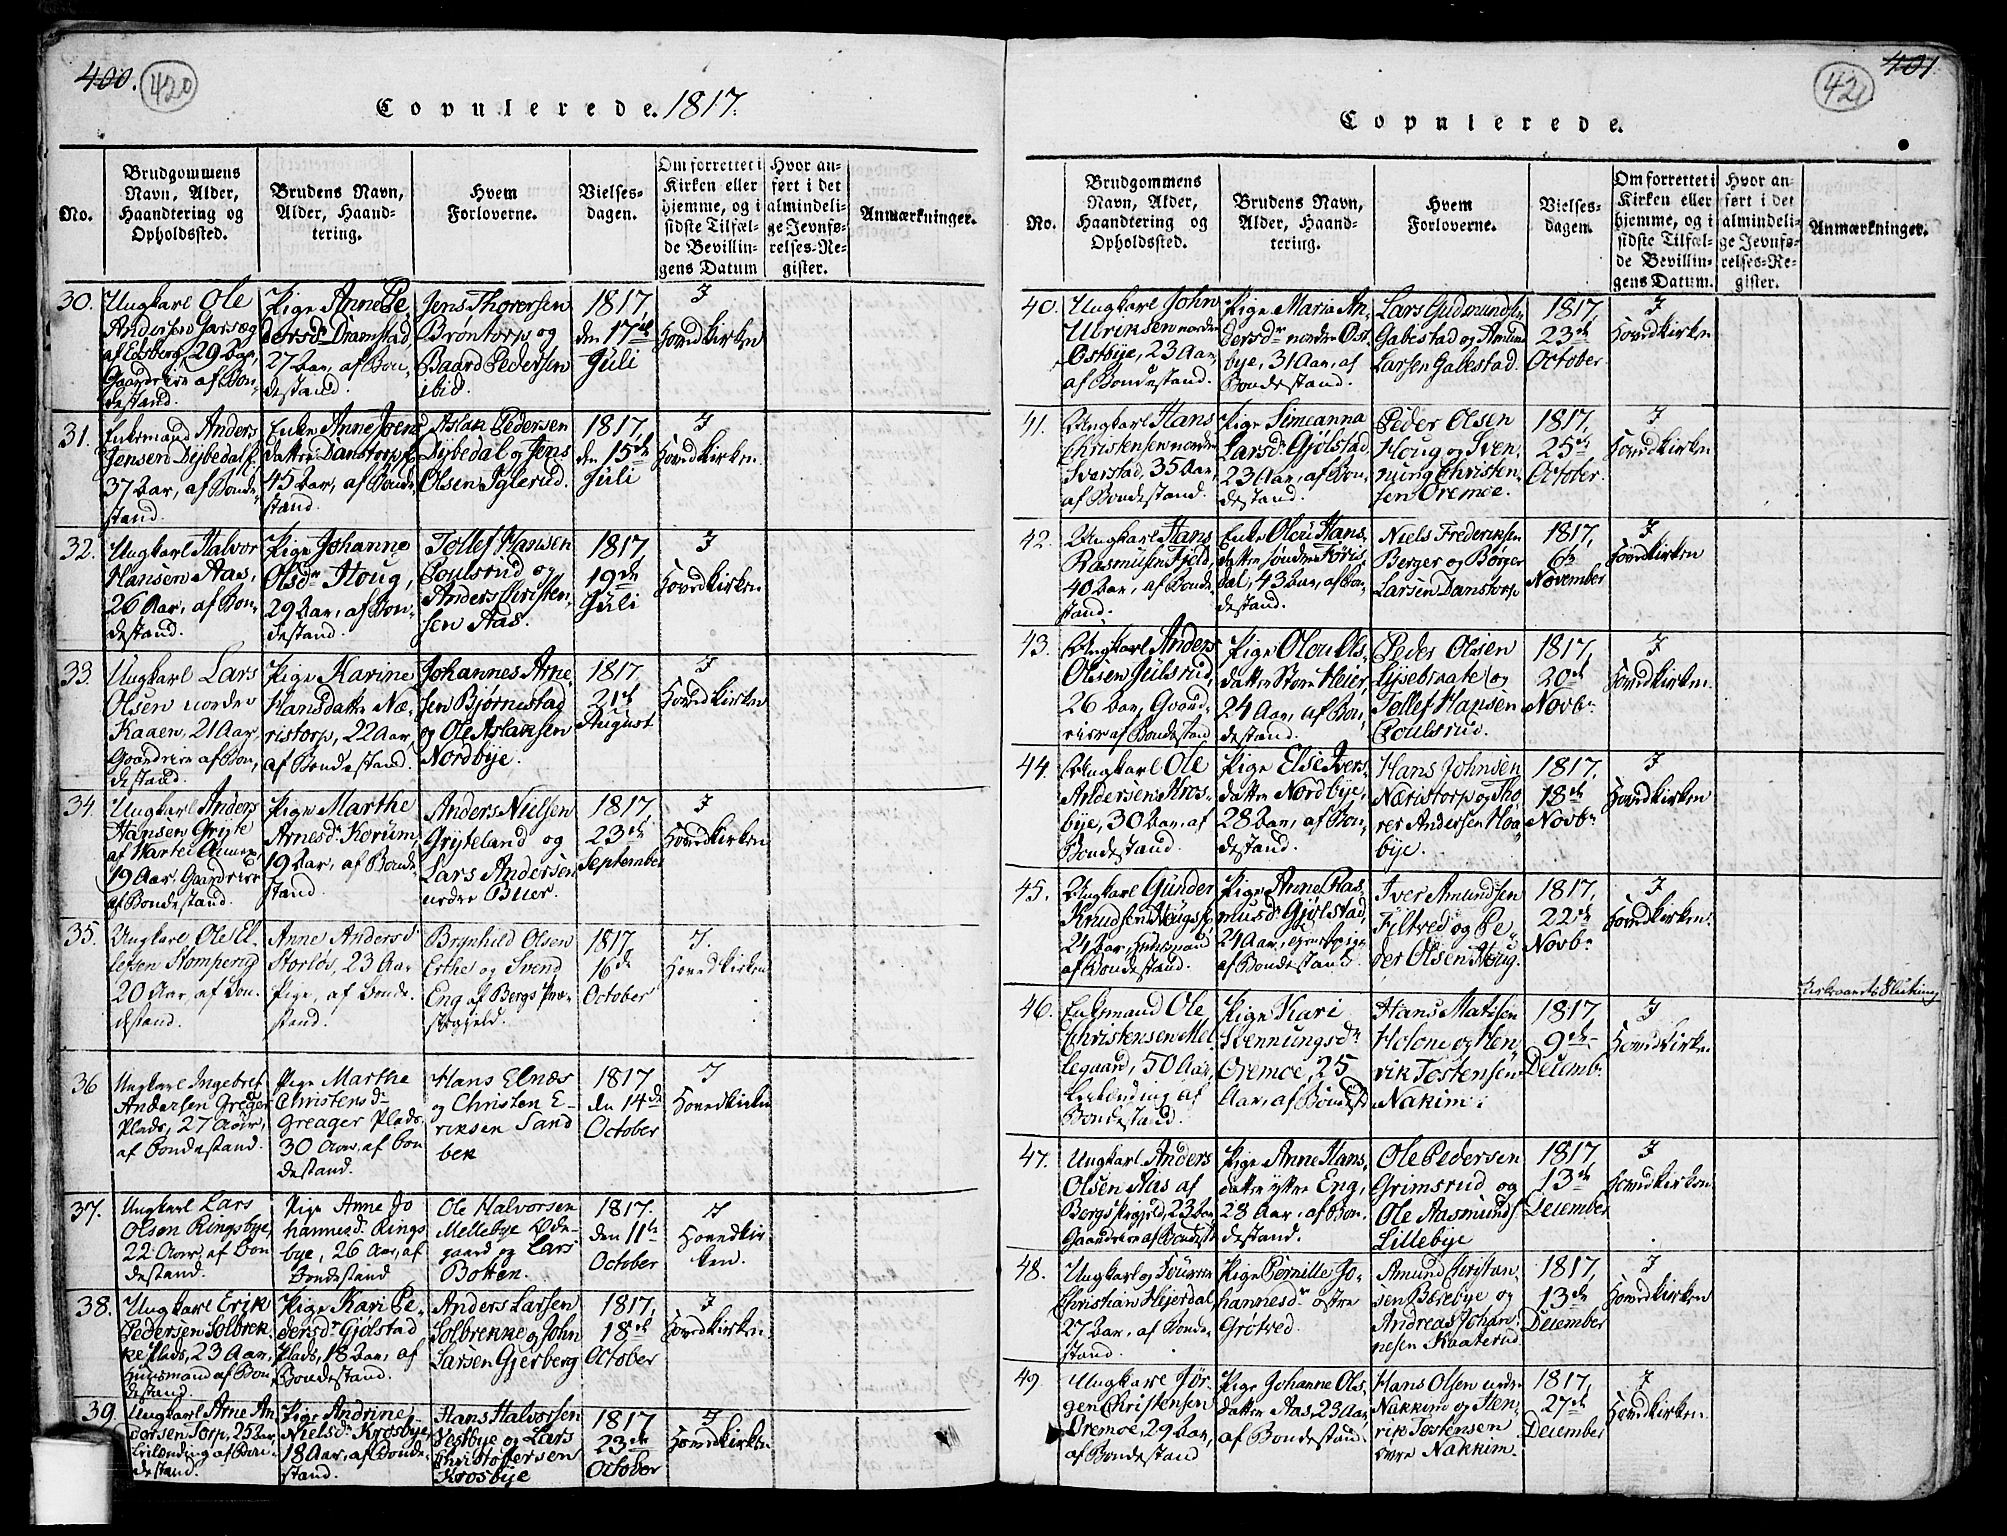 400. 420
Copulerede. 1817.
No.
Brudgommens
Navn, Alder,
Haandtering og
Opholdssted.
Brudens Navn,
Alder, Haand-
tering.
Hvem
Forloverne.
Vielses-
dagen.
Om forrettet i
Kirken eller
hjemme, og i
sidste Tilfæl-
de Bevillin-
gens Datum
Hvor an-
ført i det
almindeli-
ge Jevnfø-
relses-Re-
gister.
Anmærkninger.
30.
Ungkarl Ole
Andersen
af Edsberg, 29 Aar,
Gaardeier af Bon-
destand.
Pige Anne Pe-
dersdr Dramstad
27 Aar, af Bon-
destand.
Jens Thorersen
Brøntorp og
Baard Pedersen
ibid.
1817,
den 17de
Juli
I
Hovedkirken
31.
Enkemand Anders
Jensen Dybedal
37 Aar, af Bonde-
stand.
Enke Anne Jens
datter Danstorp
45 Aar, af Bonde-
stand.
Aslak Pedersen
Dybedal og Jens
Olsen Iglerud.
1817,
den 15de
Juli
I
Hovedkirken.
32.
Ungkarl Halvor
Hansen Aas,
26 Aar, af Bon-
destand.
Pige Johanne
Olsdr Houg,
29 Aar, af Bon-
destand.
Tollef Hansen
Poulsrud og
Anders Christen-
sen Aas.
1817,
19de
Juli
I
Hovedkirken
33.
Ungkarl Lars
Olsen norden
Kaaen, 21 Aar,
Gaardeier af Bon-
destand.
Pige Karine
Hansdatter Næ-
ristorp, 22 Aar,
af Bondestand.
Johannes Arne-
sen Bjørnestad
og Ole Aslaksen
Nordbye.
1817.
21de
August
I
Hovedkirken
34.
Ungkarl Anders
Hansen Gryte
af Annex,
19 Aar, Gaardeier
af Bondestand.
Pige Marthe
Arnesdr Korum,
19 Aar, af Bonde-
stand.
Anders Nielsen
Gryteland og
Lars Andersen
nedre Buer.
1817,
23de
September
I
Hovedkirken
35.
Ungkarl Ole El-
lefsen Stomperig
20 Aar, af Bon-
destand.
Anne Andersd
Storløs, 23 Aar
Pige, af Bonde-
stand.
Brynhild Olsen
Erthe og Svend
Eng af Bergs Præ-
stegjeld.
1817.
16de
October
I.
Hovedkirken
36
Ungkarl Ingebret
Andersen Greger
Plads, 27 Aar,
af Bondestand.
Pige Marthe
Christensdr
Greager Plads,
30 Aar, af Bon
destand.
Hans Elnæs
og Christen E-
riksen Sand
bek
1817.
den 14de
October
I
Hovedkirken
37.
Ungkarl Lars
Olsen Ringsbye,
22 Aar, af Bon
destand.
Pige Anne Jo
hannesdr Rings
bye, 26 Aar, af
Bondestand
Ole Halvorsen
Mellebye Øde-
gaard og Lars
Botten.
1817.
den 11te
October
I
Hovedkir-
ken.
38.
Ungkarl Erik
Pedersen Solbrek-
ke Plads, 23 Aar,
Huusmand af Bon-
destand
Pige Kari Pe-
dersdr Gjølstad
Plads, 18 Aar, af
Bondestand.
Anders Larsen
Solbrekke og John
Larsen Gjerberg
1817,
18de
October
I
Hovedkirken.
39
Ungkarl Arne An
dersen Torp, 25 Aar
Leilænding af Bon-
destand.
Pige Andrine
Nielsdr Krosbye
18 Aar, af Bonde-
stand.
Hans Halvorsen
Vestbye og Lars
Christoffersen
Krosbye
1817
23de
October
I
Hovedkirken
401 421
Copulerede.
No.
Brudgommens
Navn, Alder,
Haandtering og
Opholdssted.
Brudens Navn,
Alder, Haand-
tering.
Hvem
Forloverne.
Vielses-
dagen.
Om forrettet i
Kirken eller
hjemme, og i
sidste Tilfæl-
de Bevillin-
gens Datum.
Hvor an-
ført i det
almindeli-
ge Jevnfø-
relses-Re-
gister.
Anmærkninger.
40.
Ungkarl John
Ulriksen norden
Østbye, 23 Aar,
af Bondestand.
Pige Maria An-
dersdr norden Øst
bye, 31 Aar, af
Bondestand.
Lars Gudmundsen
Gabestad og Amund
Larsen Gabestad.
1817,
23de
October
I
Hovedkirken
41.
Ungkarl Hans
Christensen norden
Sverstad, 35 Aar,
af Bondestand.
Pige Simeanna
Larsdr Gjølstad,
23 Aar, af Bon-
destand.
Peder Olsen
Houg og Sven-
nung Christen-
sen Oremoe.
1817,
25de
October.
I
Hovedkirken
42.
Ungkarl Hans
Rasmusen Fjeld,
40 Aar, af Bonde
stand.
Enke Olou Hans-
datter søndre
dal, 43 Aar, af Bon-
destand.
Niels Frederiksen
Berger og Børger
Larsen Danstorp
1817,
6te
November
I
Hovedkirken
43.
Ungkarl Anders
Olsen Julsrud,
26 Aar, Gaard-
eier af Bondestand
Pige Olou Ols-
datter Store Heier,
24 Aar, af Bon-
destand.
Peder Olsen
Lysebraate og
Tollef Hansen
Poulsrud.
1817,
20de
Novbr
I
Hovedkirken.
44.
Ungkarl Ole
Andersen Kros-
bye, 30 Aar, af
Bondestand.
Pige Else Ivers-
datter Nordbye,
28 Aar, af Bon-
destand.
Hans Johnsen
Næristorp og Tho-
rer Andersen Haa-
bye.
1817,
18de
Novbr
I
Hovedkirken
45.
Ungkarl Gunder
Knudsen
24 Aar, Huusmand
af Bondestand.
Pige Anne Ras-
musdr Gjølstad,
24 Aar,
af Bondestand.
Iver Amundsen
Filtved og Pe-
der Olsen Houg.
1817,
22de
Novbr
I
Hovedkirken.
46.
Enkemand Ole
Christensen Mel-
legaard, 50 Aar,
Leilænding af
Bondestand.
Pige Kari
Svennungsdr
Oremoe, 25
Aar, af Bondest
Hans Matisen
Holone og Hen-
rik Tostensen
Nakim.
1817,
9de
Decembr.
I
Hovedkirken
47.
Ungkarl Anders
Olsen Aas af
Bergs Prgjeld, 23 Aar
Gaardeier af Bondest
Pige Anne Hans-
datter yttre Eng,
28 Aar, af Bon-
destand.
Ole Pedersen
Grimsrud og
Ole Aasmunds
Lillebye
1817,
13de
December
I
Hovedkirken
48.
Ungkarl og
Christian Hejerdal
27 Aar, af Bonde-
stand.
Pige Pernille Jo-
hannesdr østre
Grøtved.
Amund Christian-
sen Bærebye og
Andreas Johan-
nesen Kaaterud
1817,
13de
December
I
Hovedkirken
49
Ungkarl Jør-
gen Christensen
Oremoe, 29 Aar,
af Bondestand
Pige Johanne Ols-
datter Aas, 23 Aar,
af Bondestand.
Hans Olsen nedre
Nakkim og Hen-
rik Tostensen
øvre Nakkim.
1817,
27de
December
I
Hovedkirken.